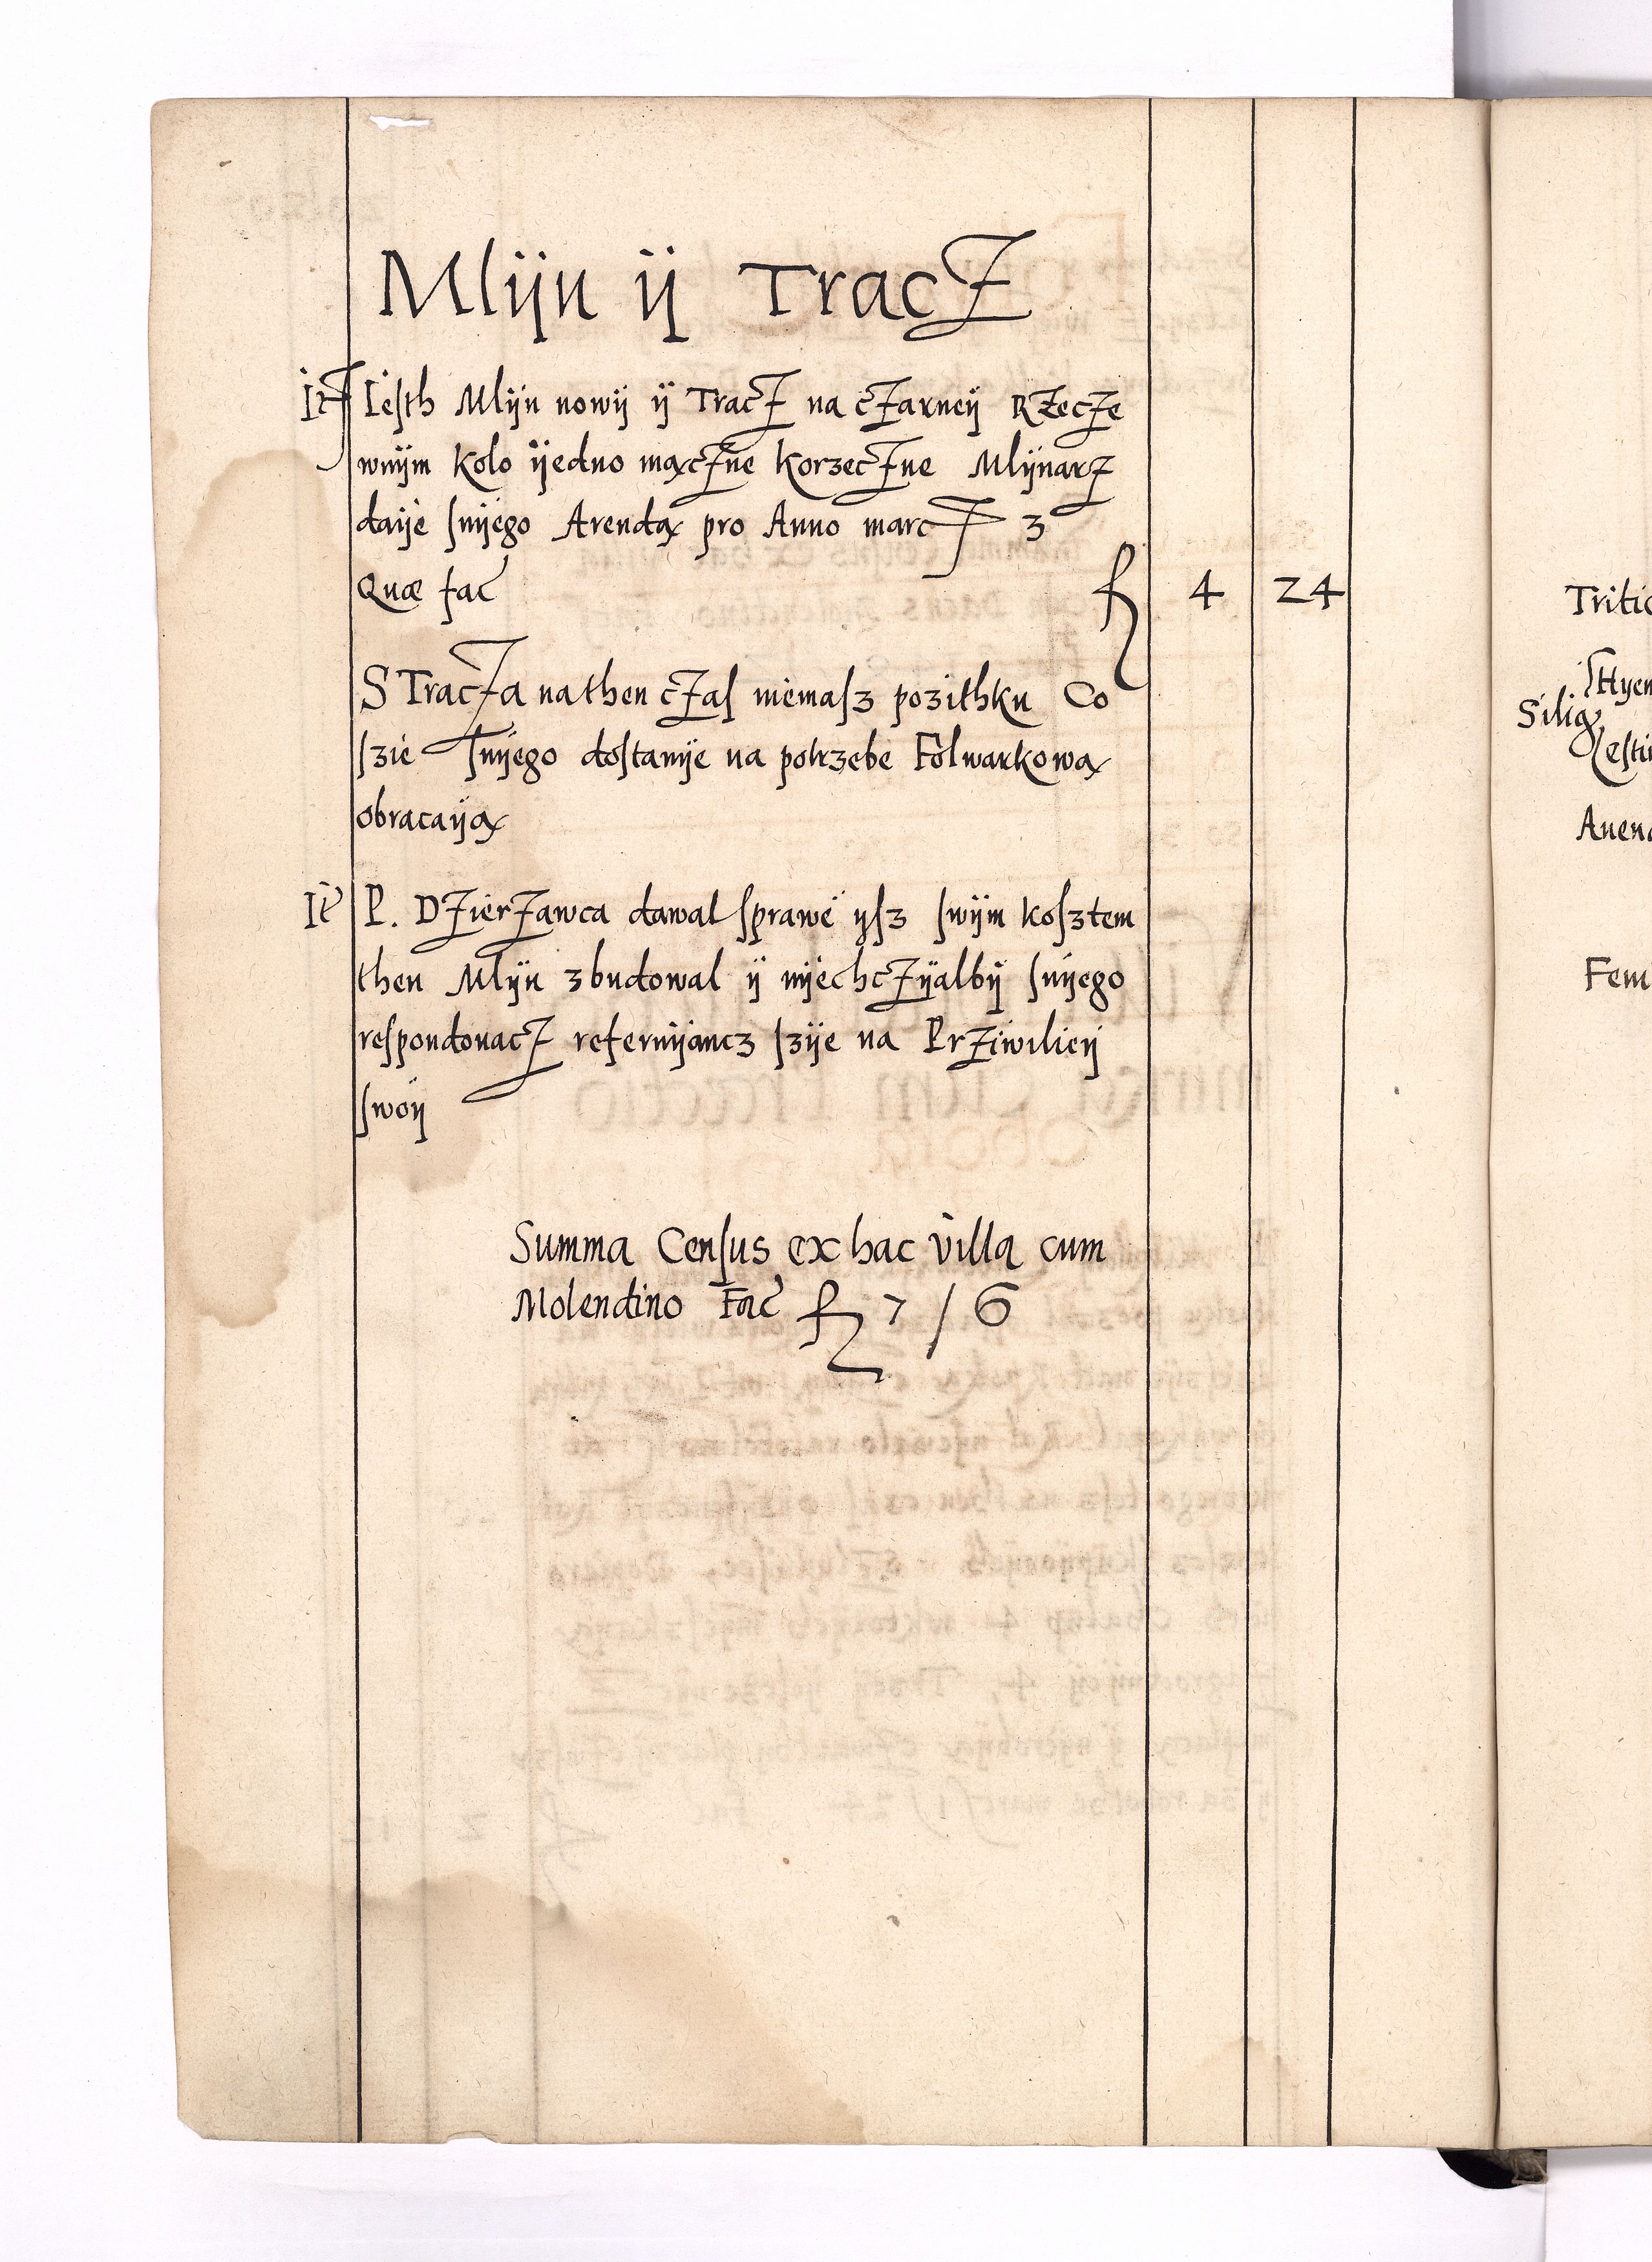 Mlijn ij Tracz
It Iesth Mlijn nowij ij Tracz na czarneij Rzecze
wnijm Kolo ijedno mączne Korzeczne Mlijnarz
daije snijego Arendą pro Anno marc 3
Quæ fac fl 4 24
S Tracza na then czas niemasz pozithku Co
szie snijego dostanije na potrzebe Folwarkową
obracaiją
It P. Dzierzawca dawal sprawe ysz swijm kosztem
then Mlijn zbudowal ij nijechczijalbij snijego
respondovacz refernijancz szije na Prziwilieij
swoij
Summa Census ex hac villa cum
Molendino Fac fl 7 / 6
Tritic
Hyem
Silig
Aestiv
Auena